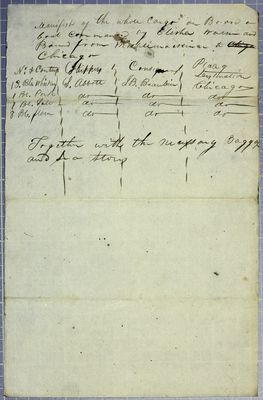 Manifest of the whole Cargo on Board a
boat Commanded by Elisha Warner and
Bound from Michilimackinac to
Chicago
No. & Contents Shippers Consignees Place of Destination
Bls Whisky S. Abbott J.B. Beaubien Chicago
1 Bl. Pork do do do
1 Bl. Salt do do do
3 Bls flour do do do
Together with the necessary Baggage
and Sea Stores